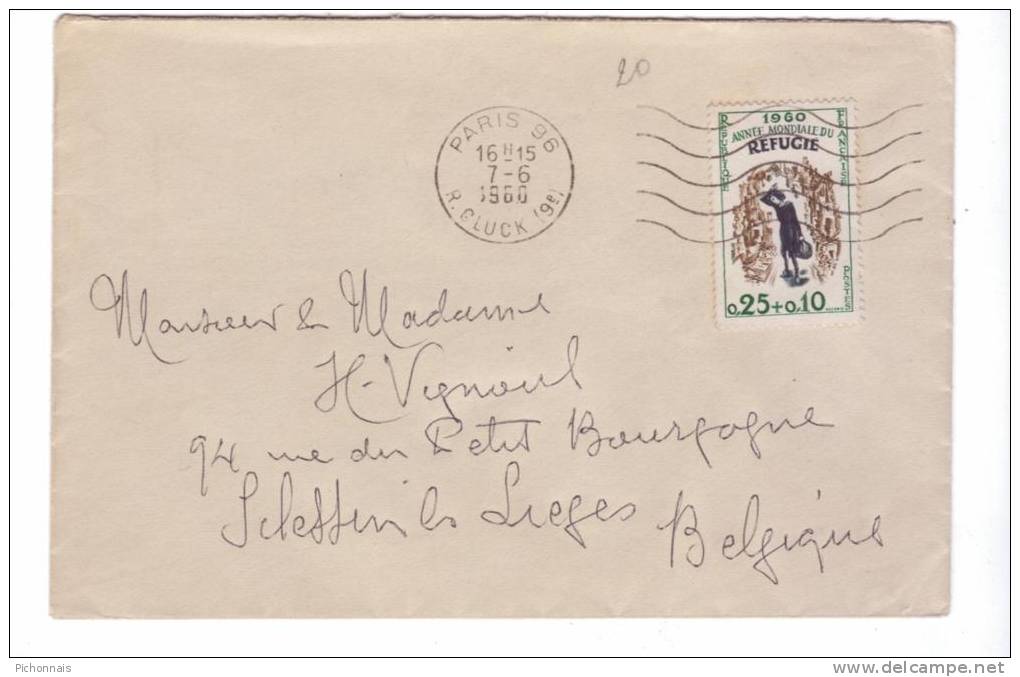 20
PARIS 96
16H15
7-6
1960
R. GLUCK (9e)
1960
ANNEE MONDIALE DU
REFUGIE
REPUBLIQUE
FRANCAISE
POSTES
0,25+0,10
Monsieur & Madame
H-Vignoul
94 rue du Petit Bourgogne
Sclessin les Lieges
Belgique
Pichonnais
www.delcampe.net